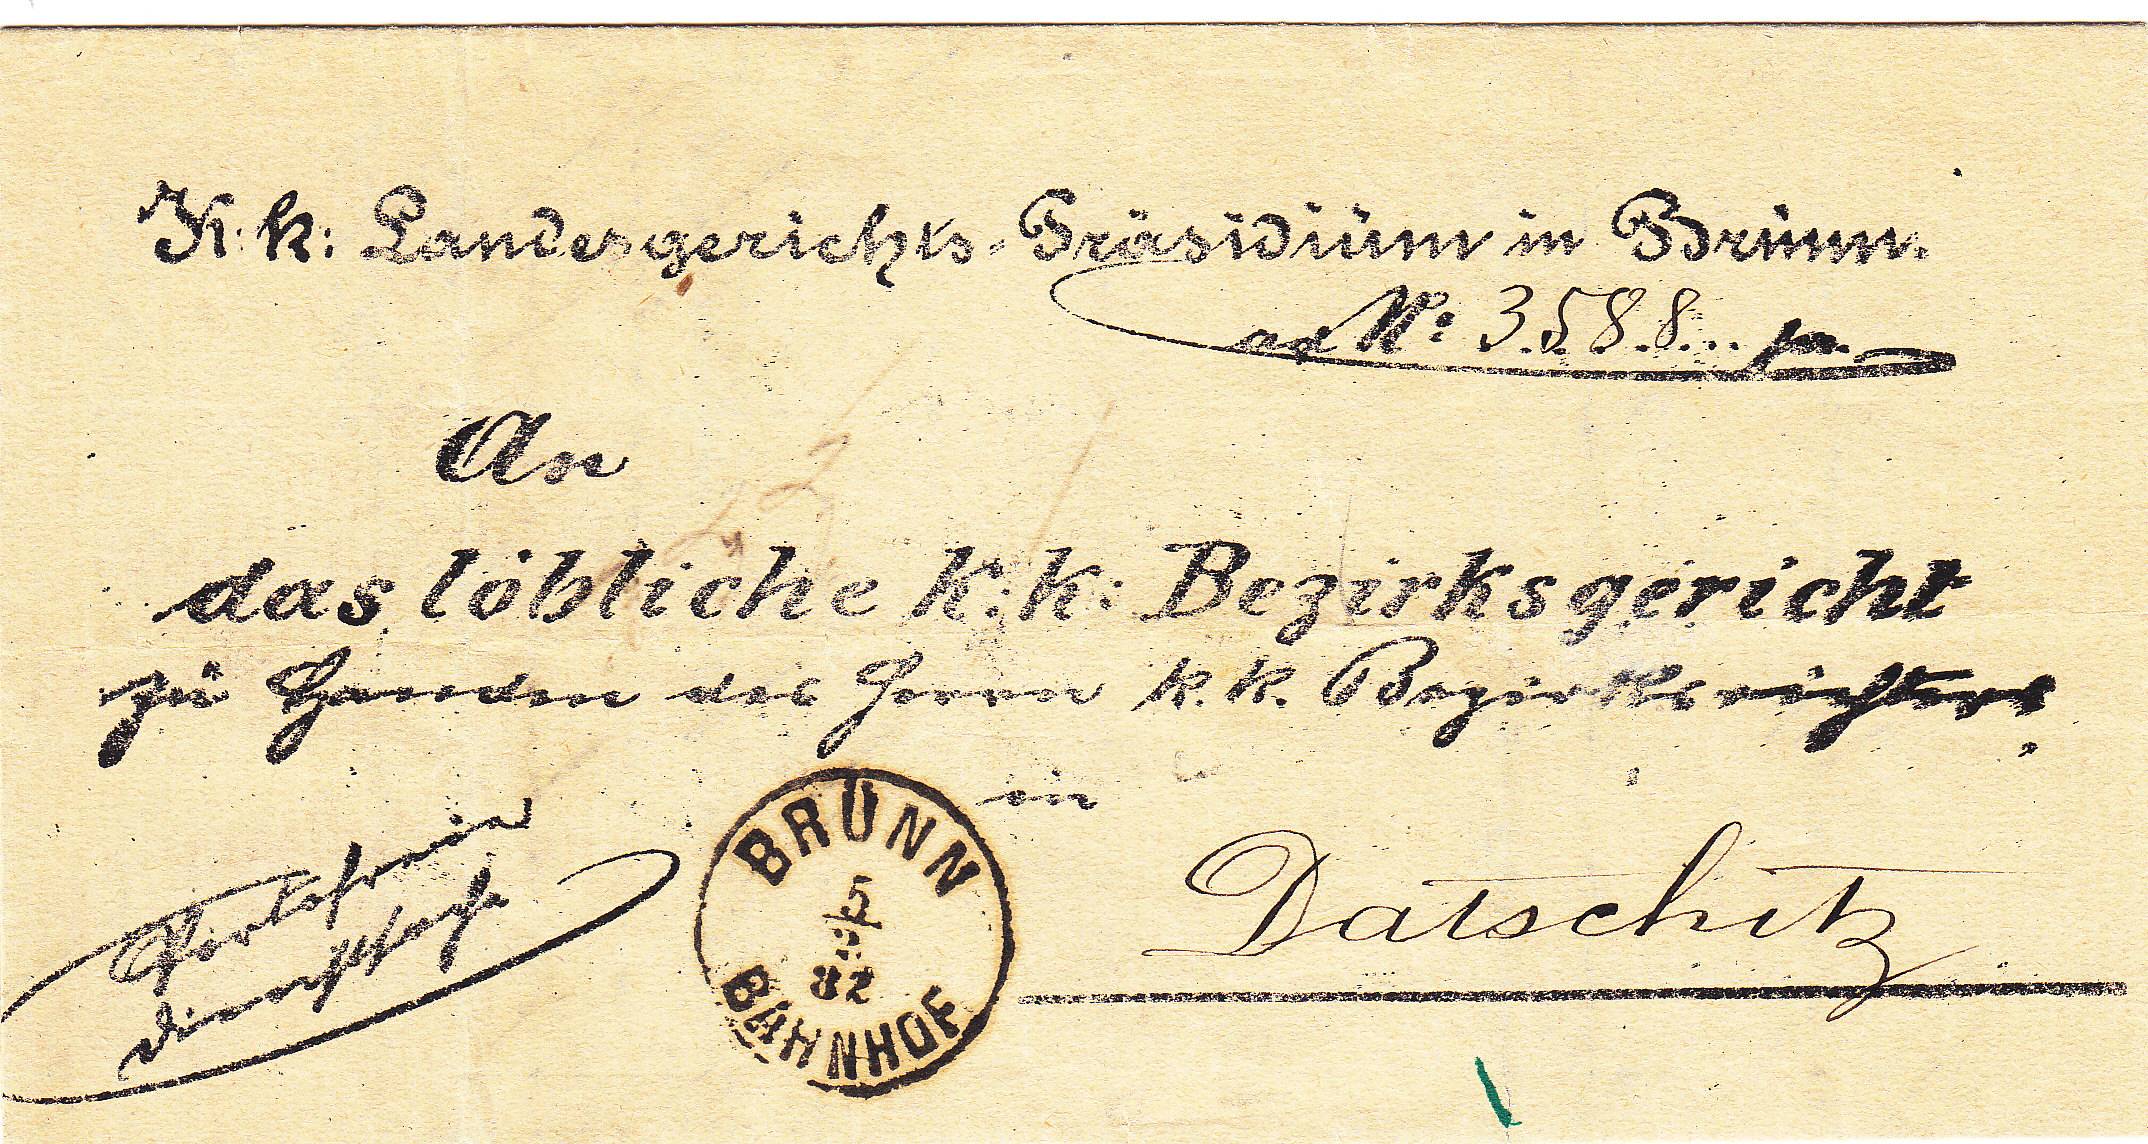 K: k: Landesgerichts-Präsidium in Brünn.
ad No: 3588 pr.
An
das löbliche k: k: Bezirksgericht
zu Handen des Herrn k. k. Bezirksrichters
in
Datschitz
Portofreie
Dienstsache
BRÜNN
5
82
BAHNHOF